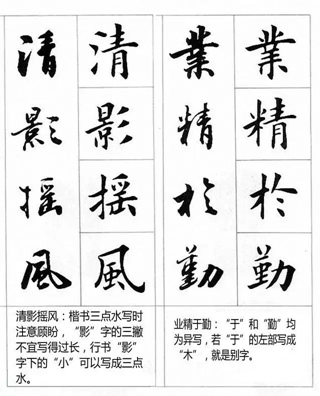 清影摇風
清影摇風
業精於勤
業精於勤
清影摇风：楷书三点水写时
注意顾盼，“影”字的三撇
不宜写得过长，行书“影”
字下的“小”可以写成三点
水。
业精于勤：“于”和“勤”均
为异写，若“于”的左部写成
“木”，就是别字。